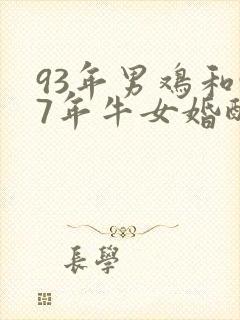 93年男鸡和
7年牛女婚配
長學